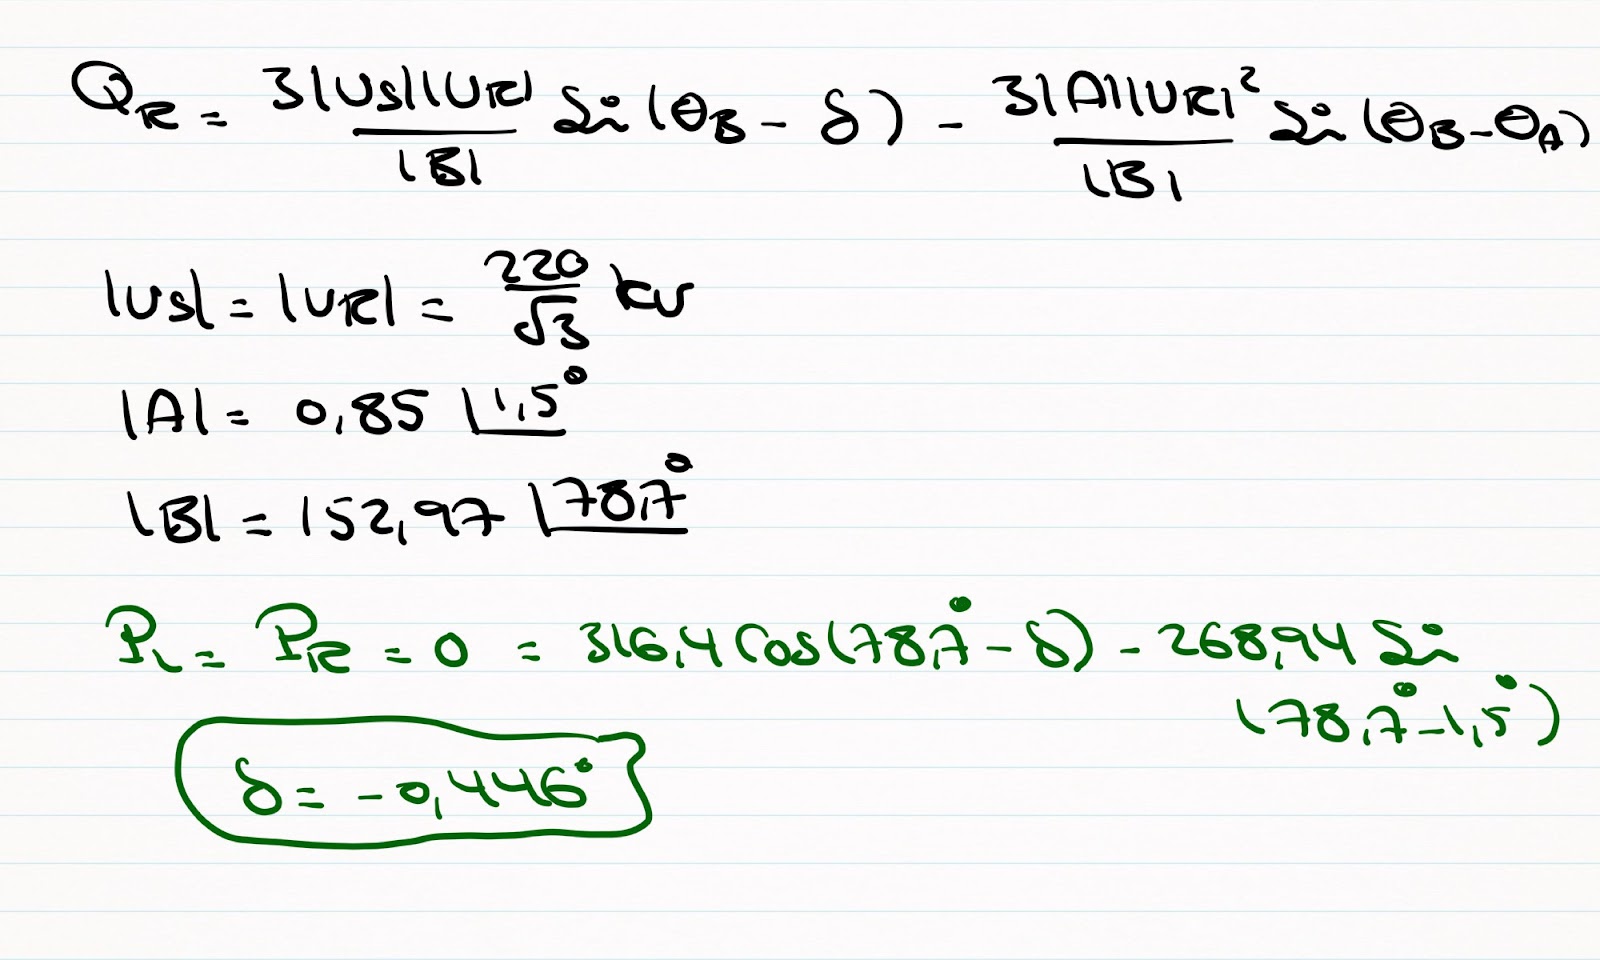 Q_R = 3|Us||UR| / |B| Sin (θ_B - δ) - 3|A||UR|² / |B| Sin (θ_B - θ_A)
|Us| = |UR| = 220/√3 kv
|A| = 0,85 ∠1,5°
|B| = 152,97 ∠78,7°
P_L = P_R = 0 = 316,4 Cos(78,7° - δ) - 268,94 Sin
(78,7° - 1,5°)
δ = -0,446°